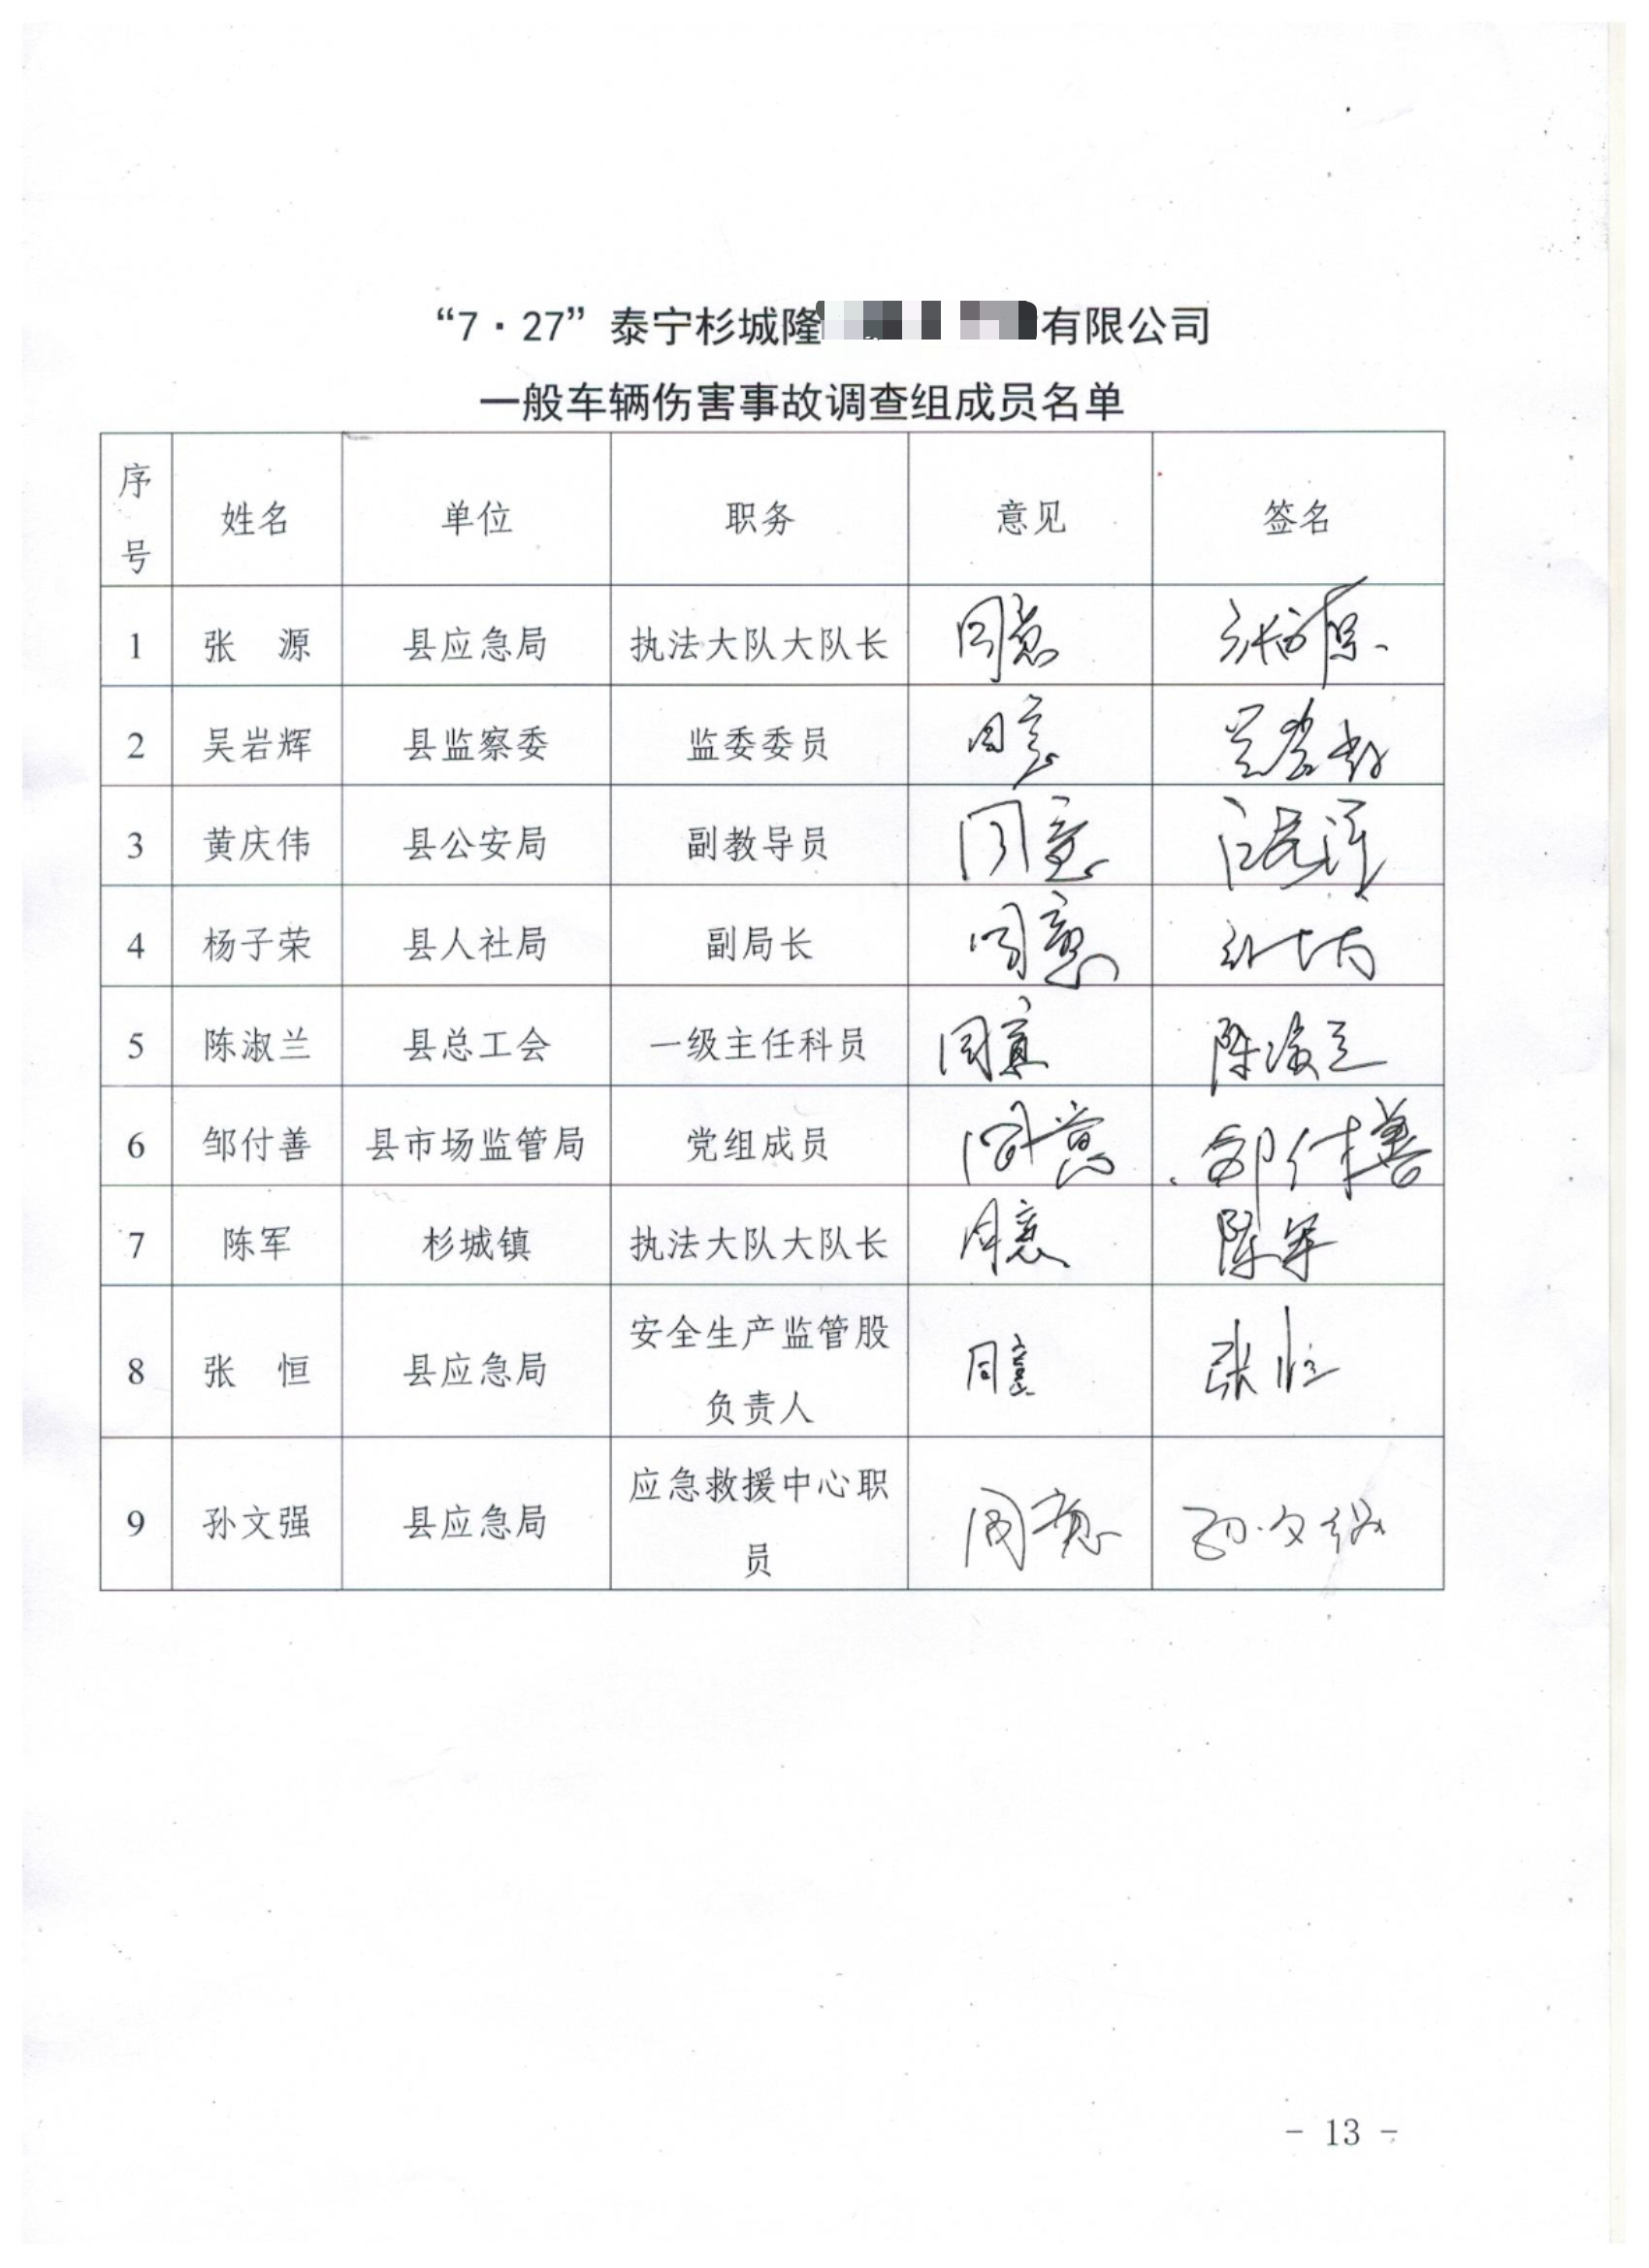 “7·27”泰宁杉城隆 有限公司
一般车辆伤害事故调查组成员名单
序号 姓名 单位 职务 意见 签名
1 张 源 县应急局 执法大队大队长 同意
2 吴岩辉 县监察委 监委委员 同意
3 黄庆伟 县公安局 副教导员 同意
4 杨子荣 县人社局 副局长 同意
5 陈淑兰 县总工会 一级主任科员 同意 陈淑兰
6 邹付善 县市场监管局 党组成员 同意 邹付善
7 陈军 杉城镇 执法大队大队长 同意 陈军
8 张 恒 县应急局 安全生产监管股 同意 张恒
负责人
9 孙文强 县应急局 应急救援中心职 同意 孙文强
员
- 13 -